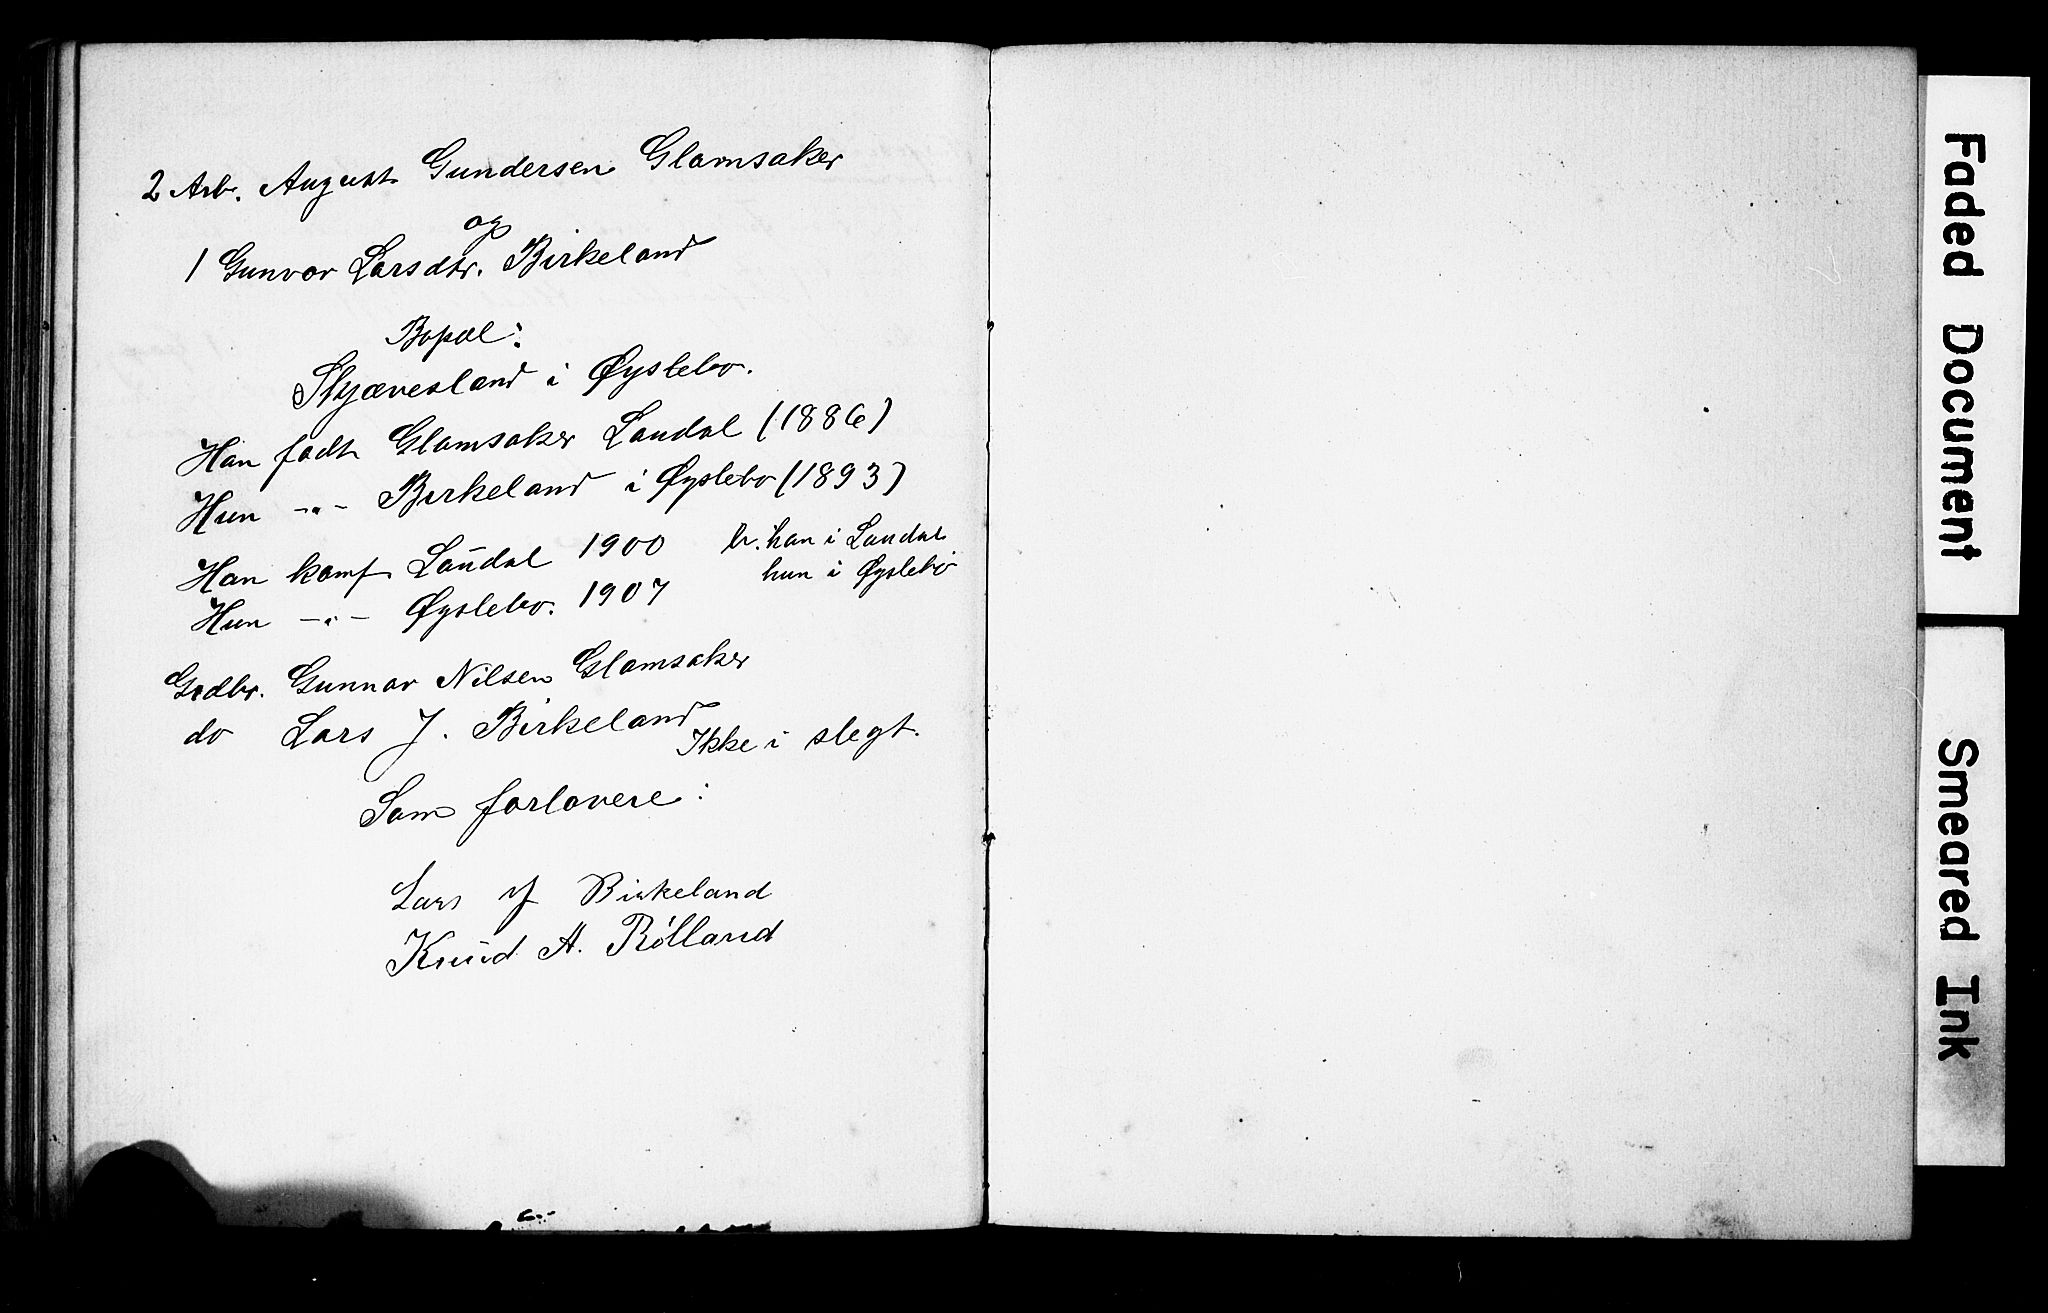 2 Arb. August Gundersen Glamsaker
og
1 Gunvor Larsdtr. Birkeland
Bopæl:
Stjævesland i Øyslebø.
Han født Glamsaker Laudal (1886)
Hun -"- Birkeland i Øyslebø (1893)
Han konf. Laudal 1900 v. han i Laudal
Hun -"- Øyslebø. 1907 hun i Øyslebø
Grdbr. Gunnar Nilsen Glamsaker
do Lars J. Birkeland
Ikke i slegt.
Som forlovere:
Lars J Birkeland
Knud A. Rölland
Faded Document
Smeared Ink